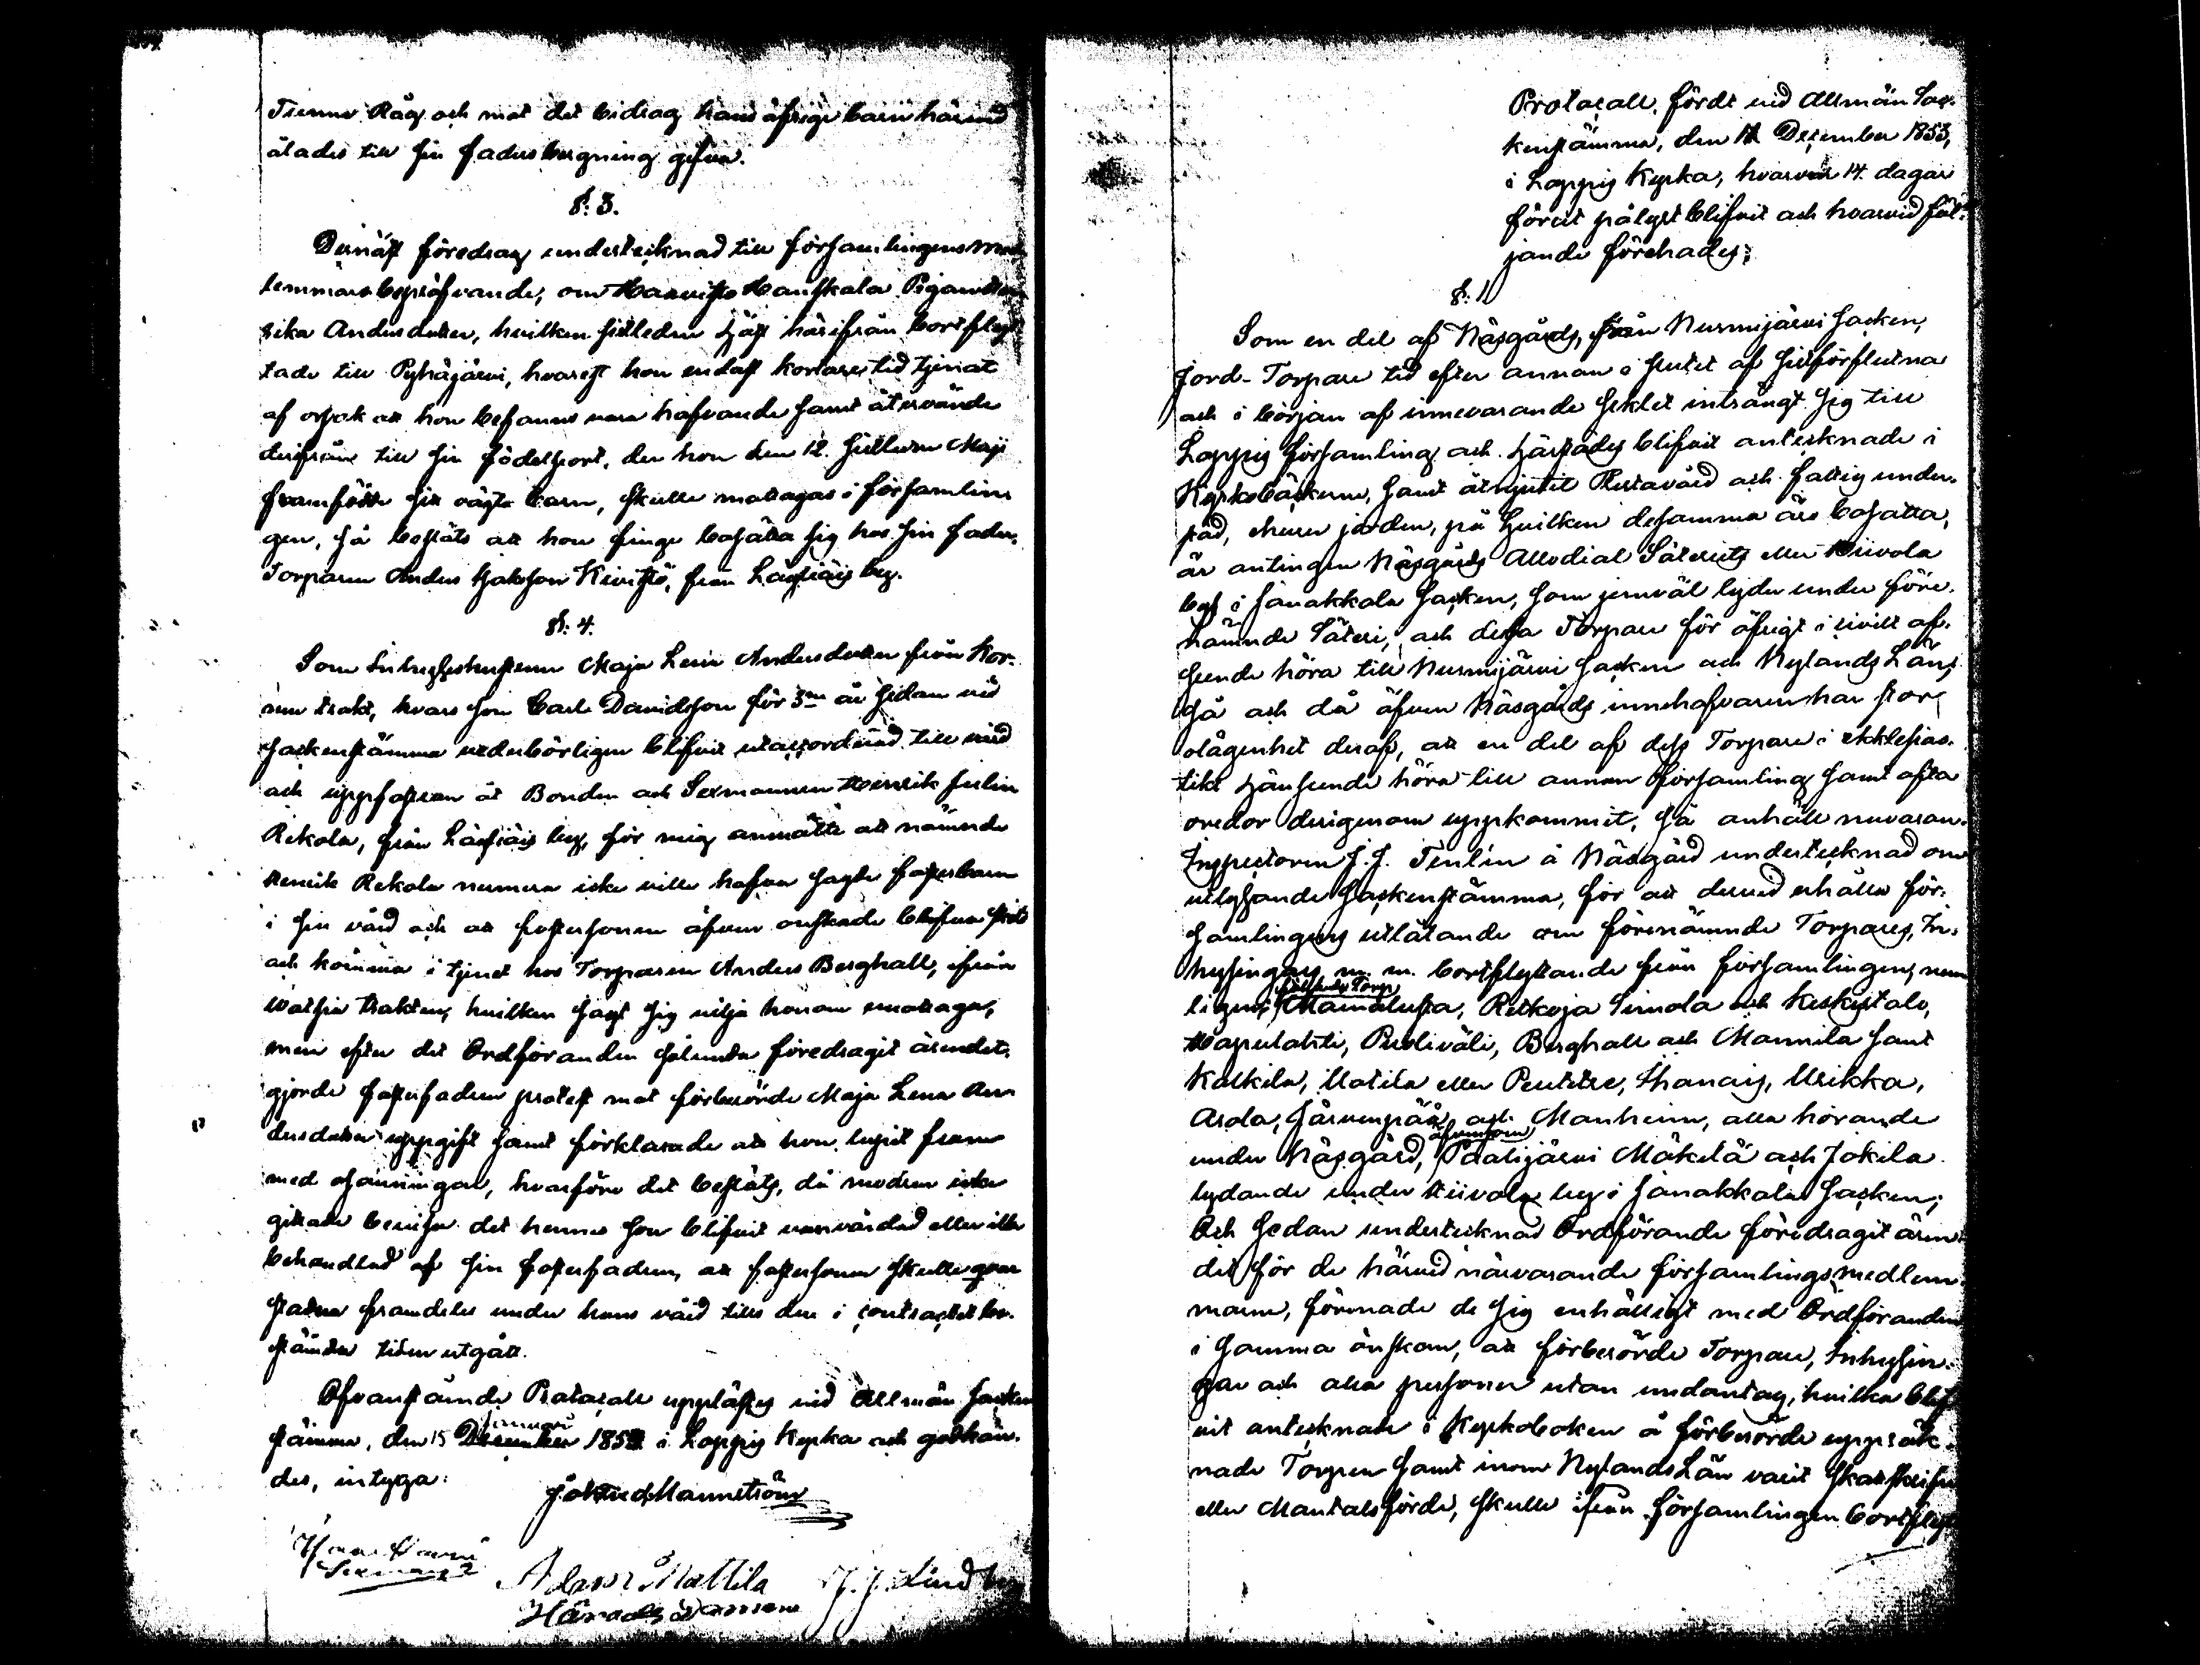 Tunnor Råg och mot det bidrag hans öfrige barn härvid
åtades till sin faders bergning gifva.
§: 3.
Dernäst föredrog undertecknad till församlingens med-
lemmars bepröfvande, om Pigan
rika Andersdotter, hvilken sistledne höst härifrån bortflyt-
tade till Pyhäjärvi, hvarest hon endast kortare tid tjenat
af orsak att hon befanns vara hafvande samt återvände
derifrån till sin födelseort, der hon den 12. sistledne Maji
framfödde sitt oägta barn, skulle mottagas i församlin-
gen, så beslöts att hon finge bosätta sig hos sin fader,
Torparen Anders Jakobsson Kivistö, från Läyliäis by.
§: 4.
Som Inhyseshustrun Maja Lena Andersdotter från Kor-
mu trakt, hvars son Carl Davidsson för 3ne år sedan vid
sockenstämma vederbörligen blifvit utaccorderad till vård
och uppfostran åt Bonden och Sexmannen Henrik Julin
Rekola, från Läyliäis by, för mig anmälte att nämnde
Henrik Rekola numera icke ville hafva sagde fosterbarn
i sin vård och att fostersonen äfven önskade blifva fri
och komma i tjenst hos Torparen Anders Berghall, ifrån
trakten, hvilken sagt sig vilja honom emottaga,
men efter det Ordföranden sålunda föredragit ärendet,
gjorde fosterfadren protest mot förberörde Maja Lena An-
dersdotters uppgift samt förklarade att hon lupit fram
med osanningar, hvarföre det beslöts, då modren icke
gittade bevisa det hennes son blifvit vanvårdad eller illa
behandlad af sin fosterfadren, att fostersonen skulle qvar
stadna framdeles under hans vård tills den i contractet be-
stämda tiden utgått.
Ofvanstående Protocoll upplästes vid Allmän Socken
stämma, den 15 Januari 185 i Loppis Kyrka och godkän-
des, intyga:
Mannström
Sexman
Adam Mattila
Härads
J. J. Lindberg
Protocoll, fördt vid Allmän Soc-
kenstämma, den December 1853,
i Loppis Kyrka, hvarom 14 dagar
förut pålyst blifvit och hvarvid föl-
jande förehades:
§: 1
Som en del af Näsgårds, från Nurmijärvi Socken,
jord-Torpare tid efter annan i slutet af sistförflutna
och i början af innevarande seklet inträngt sig till
Loppis församling och härstädes blifvit antecknade i
Kyrkoböckerne, samt åtnjutit Prestavård och fattigunder-
stöd, ehuru jorden, på hvilken desamma äro bosatta,
är antingen Näsgårds Allodial Säteries eller Hiivola
bys i Janakkala Socken, som jemväl lyder under före-
nämnde Säteri, och dessa Torpare för öfrigt i civilt af-
seende höra till Nurmijärvi Socken och Nylands Län;
så och då äfven Näsgårds innehafvaren har stor
olägenhet deraf, att en del af dess Torpare i ekklesias-
tikt hänseende höra till annan församling samt ofta
oredor derigenom uppkommit, så anhöll nuvaran-
Inspectoren J. J. Tenlén å Näsgård undertecknad om
utlysande Sockenstämma, för att dervid erhålla för-
samlingens utlåtande om förenämnde Torpares, In-
hysingars m. m. bortflyttande från församlingen, nem-
ligen: följande Torp Retkoja Simola och Keskistalo,
Haapalahti, Puoliväli, Berghall och Mannila samt
Kalkila, Uotila eller Penttere, Uikka,
Arola, Järvenpää och Manheim, alla hörande
under Näsgård, äfvensom Paalijärvi Mäkelä och Jokela
lydande under Hiivola by i Janakkala Socken;
Och sedan undertecknad Ordförande föredragit ären-
det för de härvid närvarande församlings medlem-
marne, förenade de sig enhälligt med Ordföranden
i samma önskan, att förberörde Torpare, Inhysin-
gar och alla personer utan undantag, hvilka blif-
vit antecknade i Kyrkoboken å förberörde uppräk-
nade Torpen samt inom Nylands Län varit skattskrifne
eller Mantalsförde, skulle ifrån församlingen bortflyt